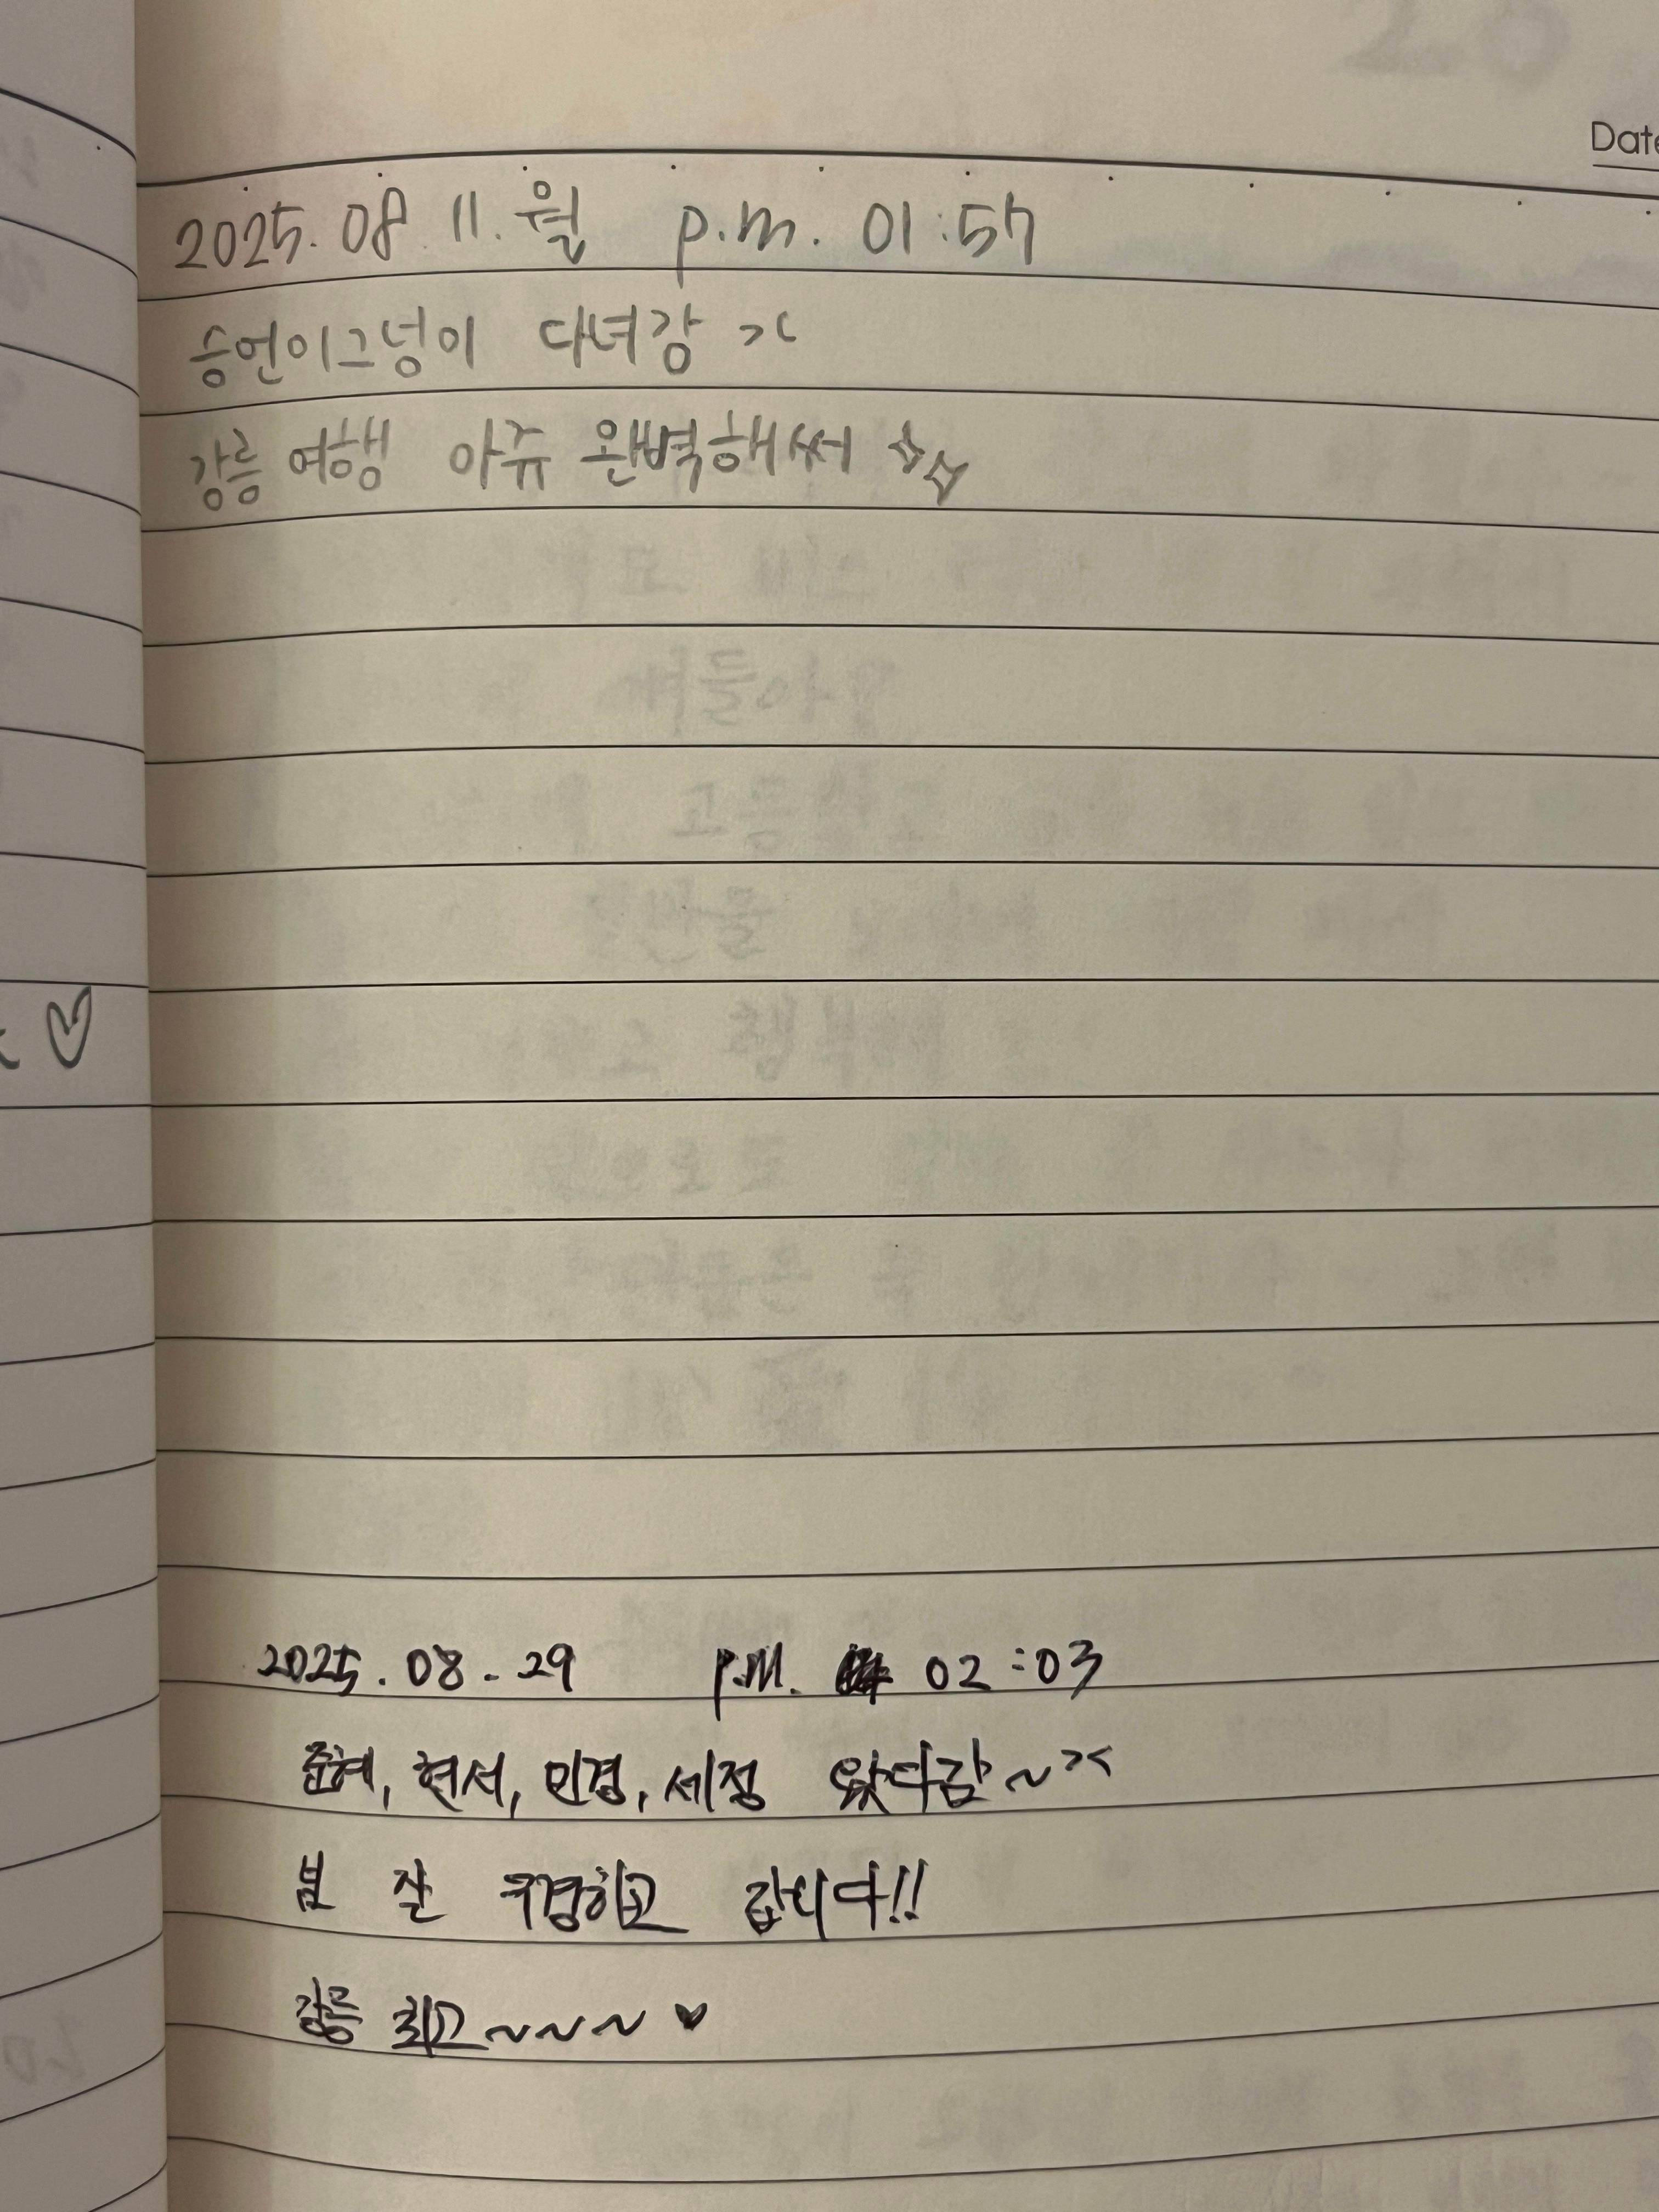 Date
2025. 08. 11. 월 p.m. 01:57
승언이그넝이 다녀강 ㅈ
강릉 여행 아쥬 완벽해써
2025. 08. 29 p.m. 02:03
준혜, 현서, 민경, 세정 왔다감~
잘 구경하고 갑니다!!
강릉 최고~~~♥